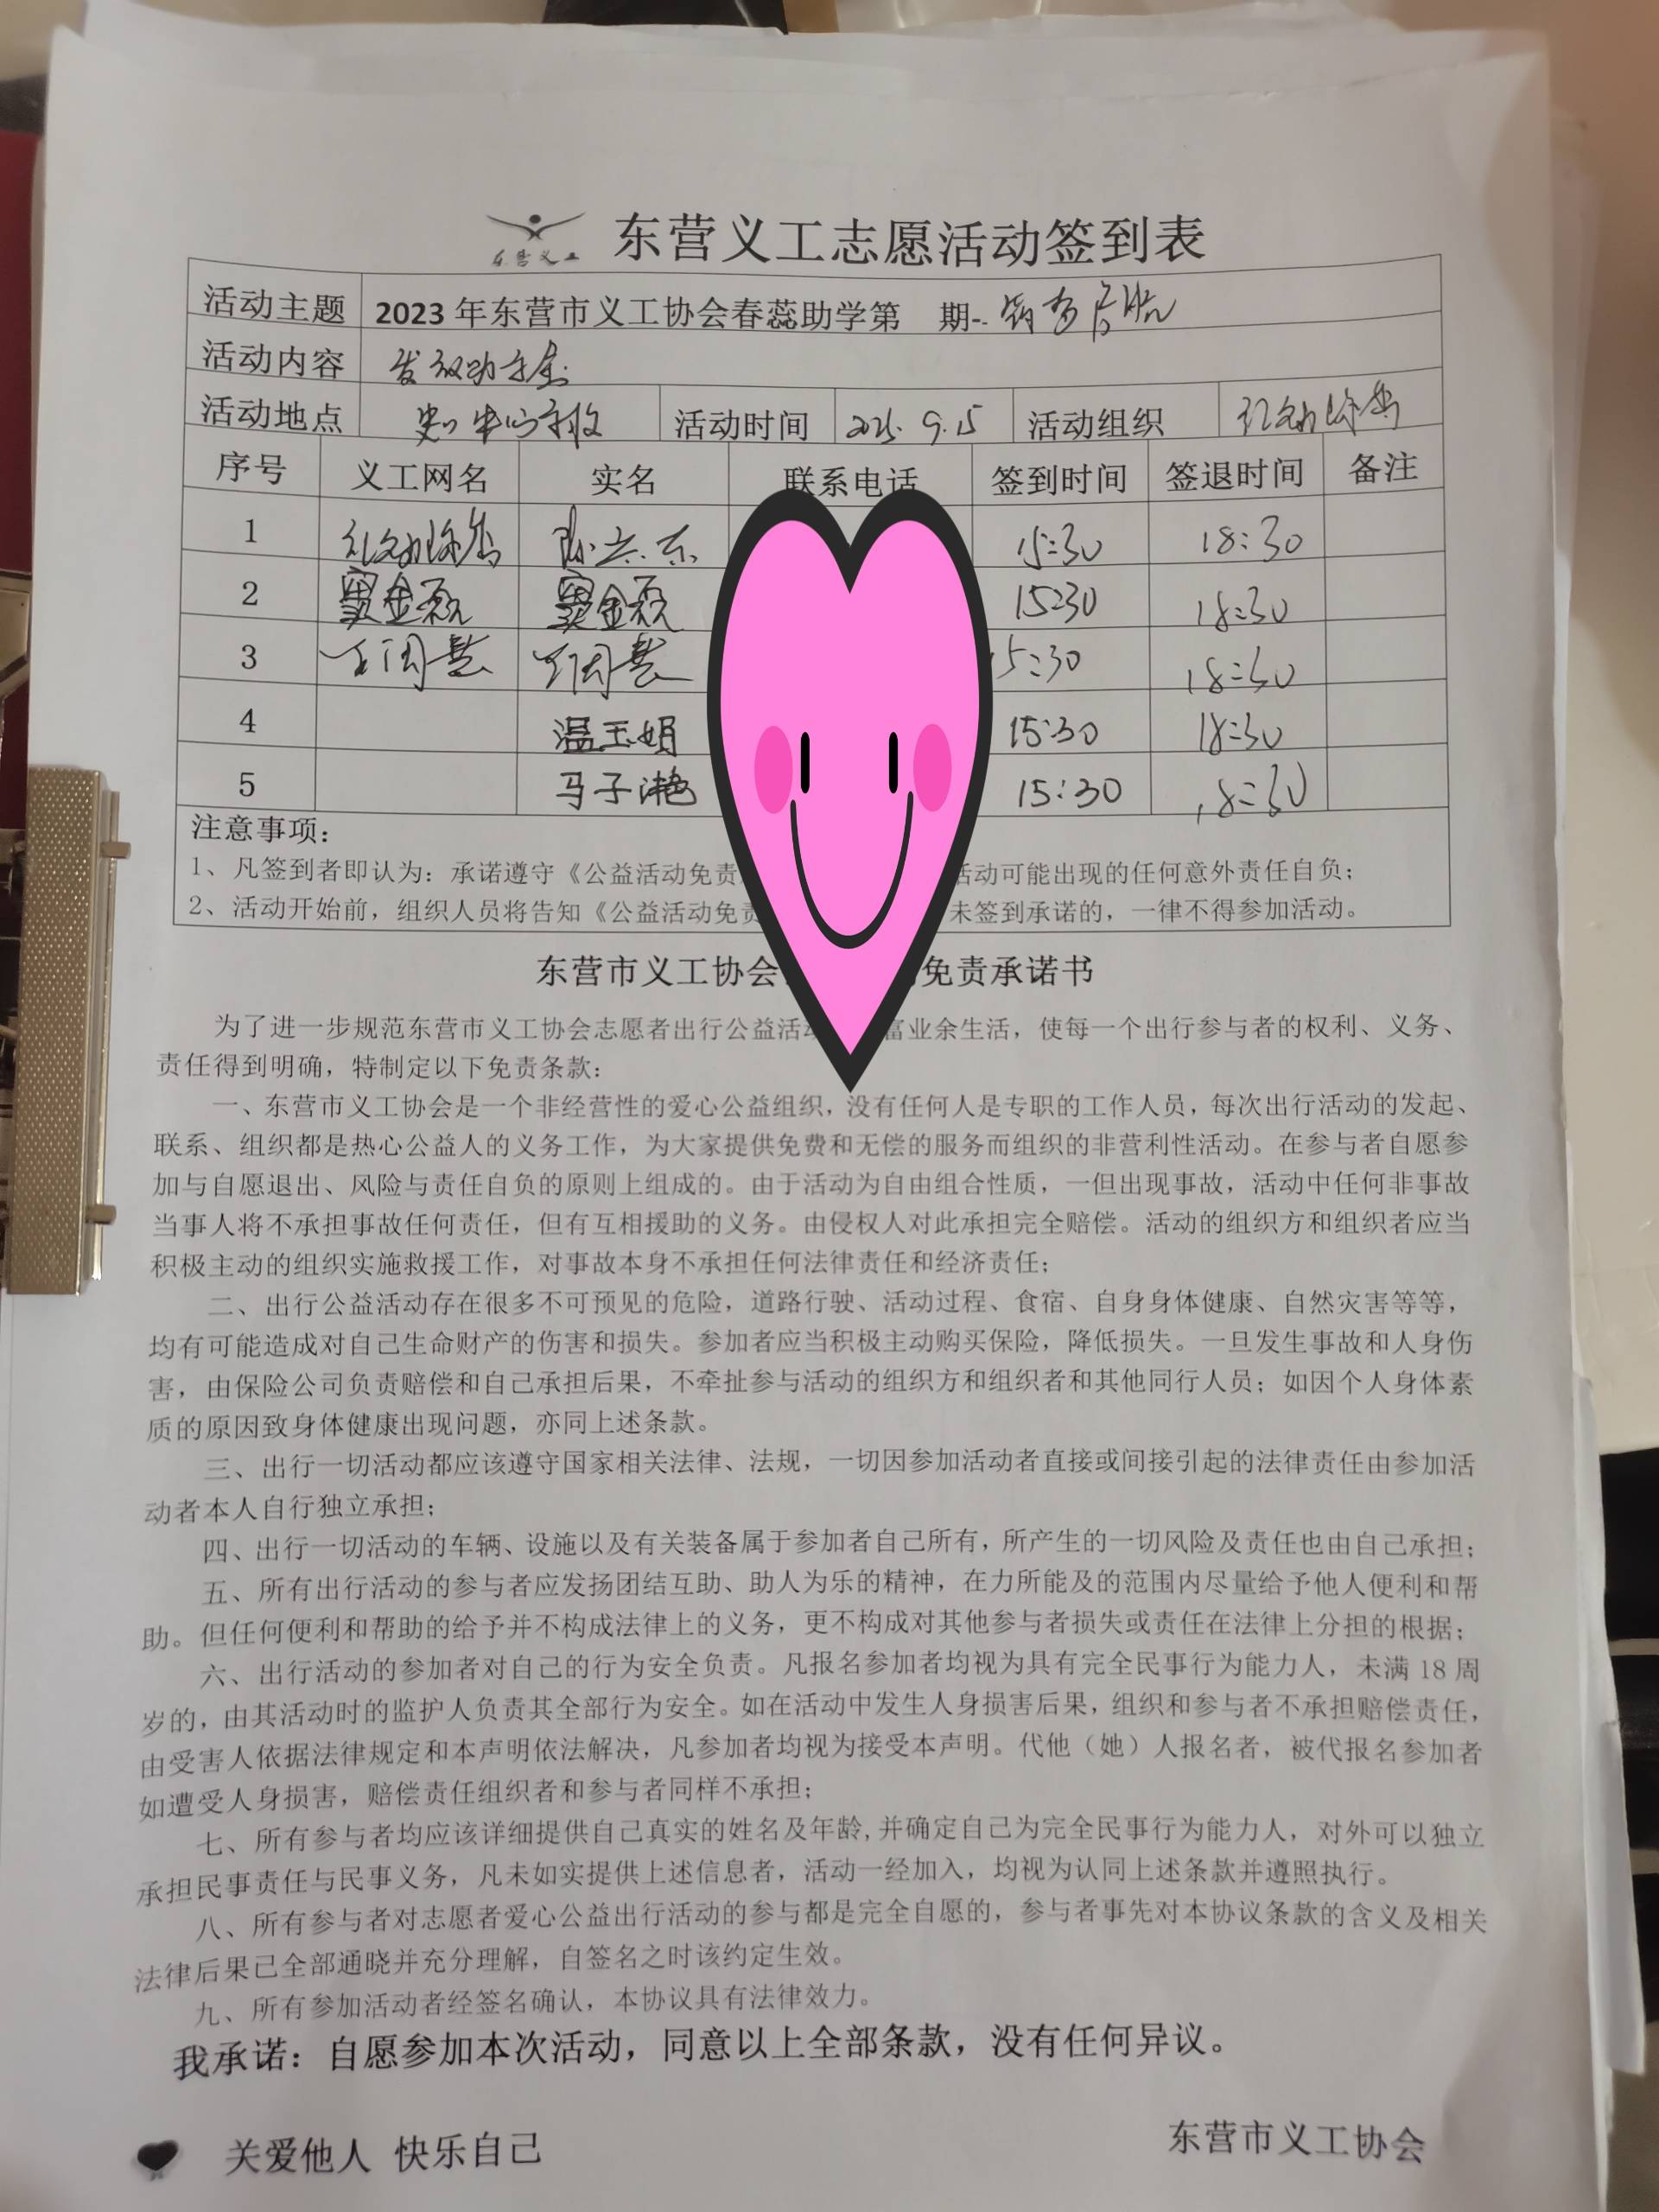 东营义工
东营义工志愿活动签到表
活动主题 2023年东营市义工协会春蕊助学第 期--
活动内容 发放助学金
活动地点 中心学校 活动时间 9.15 活动组织
序号 义工网名 实名 联系电话 签到时间 签退时间 备注
1 15:30 18:30
2 窦金磊 窦金磊 15:30 18:30
3 5:30 18:30
4 温玉娟 15:30 18:30
5 马子滟 15:30 18:30
注意事项：
1、凡签到者即认为：承诺遵守《公益活动免责 活动可能出现的任何意外责任自负；
2、活动开始前，组织人员将告知《公益活动免责 未签到承诺的，一律不得参加活动。
东营市义工协会 免责承诺书
为了进一步规范东营市义工协会志愿者出行公益活动 富业余生活，使每一个出行参与者的权利、义务、
责任得到明确，特制定以下免责条款：
一、东营市义工协会是一个非经营性的爱心公益组织，没有任何人是专职的工作人员，每次出行活动的发起、
联系、组织都是热心公益人的义务工作，为大家提供免费和无偿的服务而组织的非营利性活动。在参与者自愿参
加与自愿退出、风险与责任自负的原则上组成的。由于活动为自由组合性质，一但出现事故，活动中任何非事故
当事人将不承担事故任何责任，但有互相援助的义务。由侵权人对此承担完全赔偿。活动的组织方和组织者应当
积极主动的组织实施救援工作，对事故本身不承担任何法律责任和经济责任；
二、出行公益活动存在很多不可预见的危险，道路行驶、活动过程、食宿、自身身体健康、自然灾害等等，
均有可能造成对自己生命财产的伤害和损失。参加者应当积极主动购买保险，降低损失。一旦发生事故和人身伤
害，由保险公司负责赔偿和自己承担后果，不牵扯参与活动的组织方和组织者和其他同行人员；如因个人身体素
质的原因致身体健康出现问题，亦同上述条款。
三、出行一切活动都应该遵守国家相关法律、法规，一切因参加活动者直接或间接引起的法律责任由参加活
动者本人自行独立承担；
四、出行一切活动的车辆、设施以及有关装备属于参加者自己所有，所产生的一切风险及责任也由自己承担；
五、所有出行活动的参与者应发扬团结互助、助人为乐的精神，在力所能及的范围内尽量给予他人便利和帮
助。但任何便利和帮助的给予并不构成法律上的义务，更不构成对其他参与者损失或责任在法律上分担的根据；
六、出行活动的参加者对自己的行为安全负责。凡报名参加者均视为具有完全民事行为能力人，未满18周
岁的，由其活动时的监护人负责其全部行为安全。如在活动中发生人身损害后果，组织和参与者不承担赔偿责任，
由受害人依据法律规定和本声明依法解决，凡参加者均视为接受本声明。代他（她）人报名者，被代报名参加者
如遭受人身损害，赔偿责任组织者和参与者同样不承担；
七、所有参与者均应该详细提供自己真实的姓名及年龄,并确定自己为完全民事行为能力人，对外可以独立
承担民事责任与民事义务，凡未如实提供上述信息者，活动一经加入，均视为认同上述条款并遵照执行。
八、所有参与者对志愿者爱心公益出行活动的参与都是完全自愿的，参与者事先对本协议条款的含义及相关
法律后果已全部通晓并充分理解，自签名之时该约定生效。
九、所有参加活动者经签名确认，本协议具有法律效力。
我承诺：自愿参加本次活动，同意以上全部条款，没有任何异议。
关爱他人 快乐自己 东营市义工协会